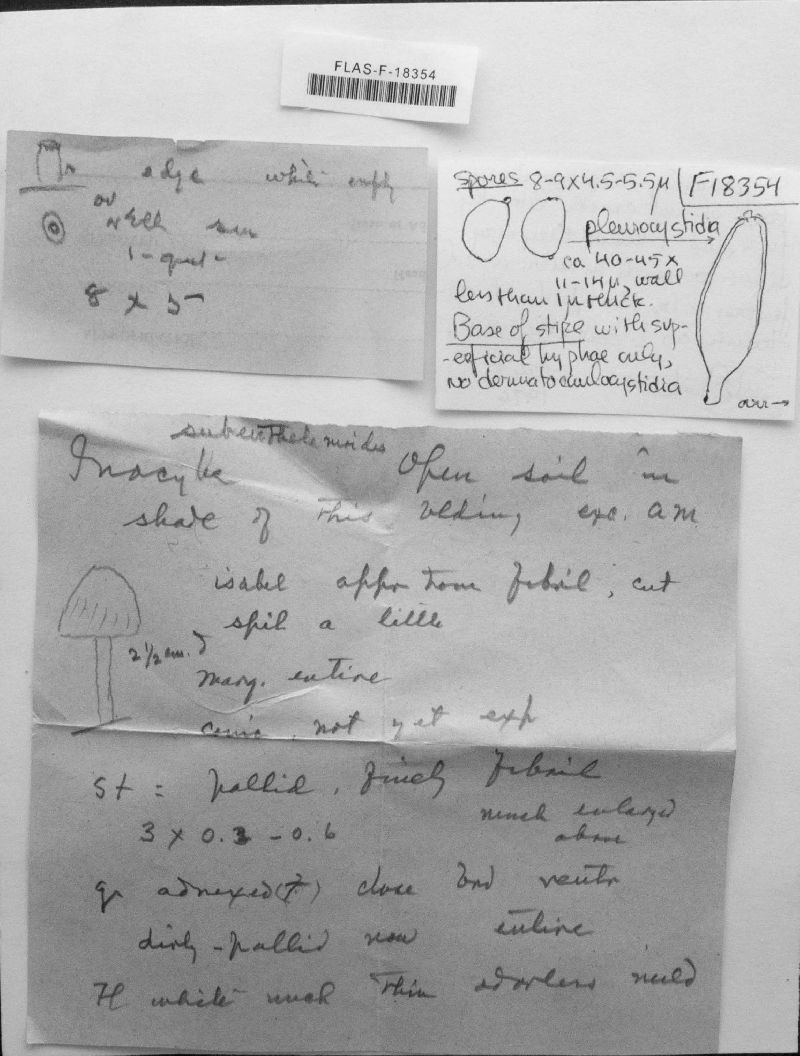 FLAS-F-18354
edge white emfly
or
well
1-gutt-
8 x 5
spores 8-9x4.5-5.5µ F18354
pleurocystidia
ca 40-45x
11-14µ, wall
less than 1µ thick.
Base of stipe with sup-
-erficial hyphae only,
no dermatocaulocystidia
over→
subenthelemoides
Inocybe Open soil in
shade of this bldin, exc. am
isabel appr tom fibril, cut
spil a little
2 1/2 cm.
marg. entire
conic, not yet exp
St = pallid, finely fibril
3 x 0.3 - 0.6 much enlarged
above
g adnexed(?) close brd ventr
dirty-pallid now entire
Fl white much thin odorless mild